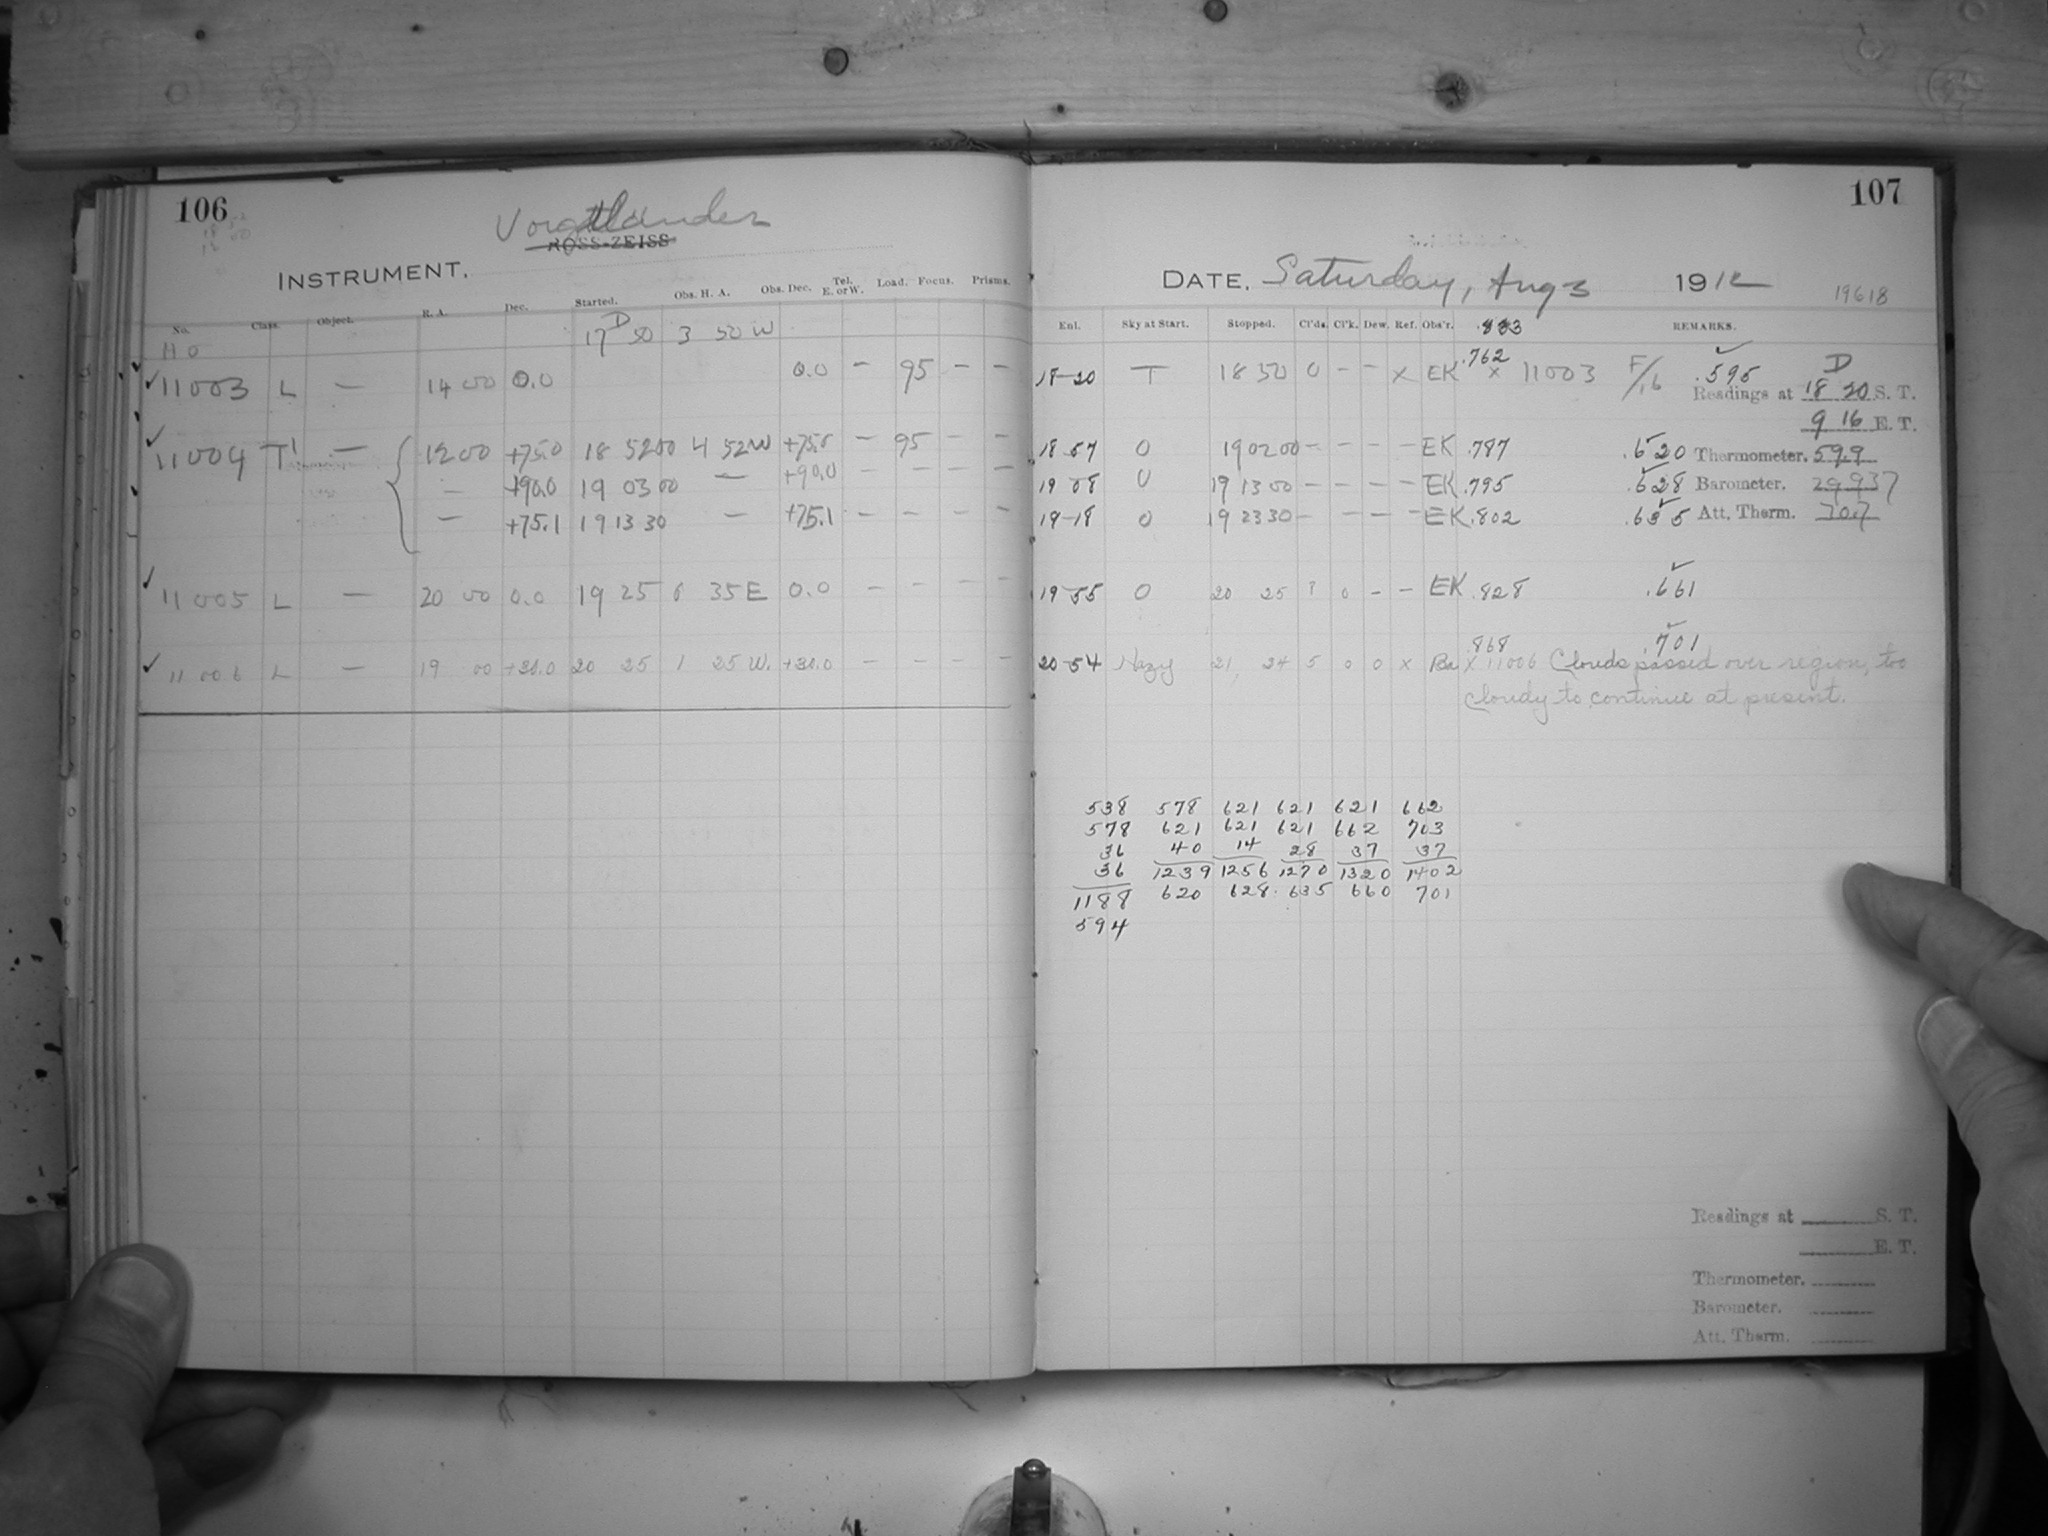 106
Voigtlander
ROSS-ZEISS
INSTRUMENT.
No. Class. Object. R. A. Dec. Started. Obs. H. A. Obs. Dec. Tel. E. or W. Load. Focus. Prisms.
17 D 50 3 50 W
11003 L — 14 00 0.0 0.0 — 95 — —
11004 T' — 12 00 +75.0 18 52 00 4 52 W +75.0 — 95 — —
— +90.0 19 03 00 — +90.0 — — — —
— +75.1 19 13 30 — +75.1 — — — —
11005 L — 20 00 0.0 19 25 0 35 E 0.0 — — — —
11006 L — 19 00 +30.0 20 25 1 25 W. +30.0 — — — —
107
DATE. Saturday, Aug 3 1912
19618
Enl. Sky at Start. Stopped. Cl'ds. Cl'k. Dew. Ref. Obs'r. REMARKS.
18-20 T 18 50 0 — — x EK .762 x 11003 F/16 .595 D
Readings at 18 20 S. T.
9 16 E. T.
18-57 0 19 02 00 — — — — EK .787 .620 Thermometer. 59.9
19 08 0 19 13 00 — — — — EK .795 .628 Barometer. 29.937
19-18 0 19 23 30 — — — — EK .802 .635 Att. Therm. 70.7
19-55 0 20 25 ? 0 — — EK .828 .661
.868 .701
20-54 Hazy 21 24 5 0 0 x Ba x 11006 Clouds passed over region, too
cloudy to continue at present.
538 578 621 621 621 662
578 621 621 621 662 703
36 40 14 28 37 37
36 1239 1256 1270 1320 1402
1188 620 628 635 660 701
594
Readings at S. T.
E. T.
Thermometer.
Barometer.
Att. Therm.